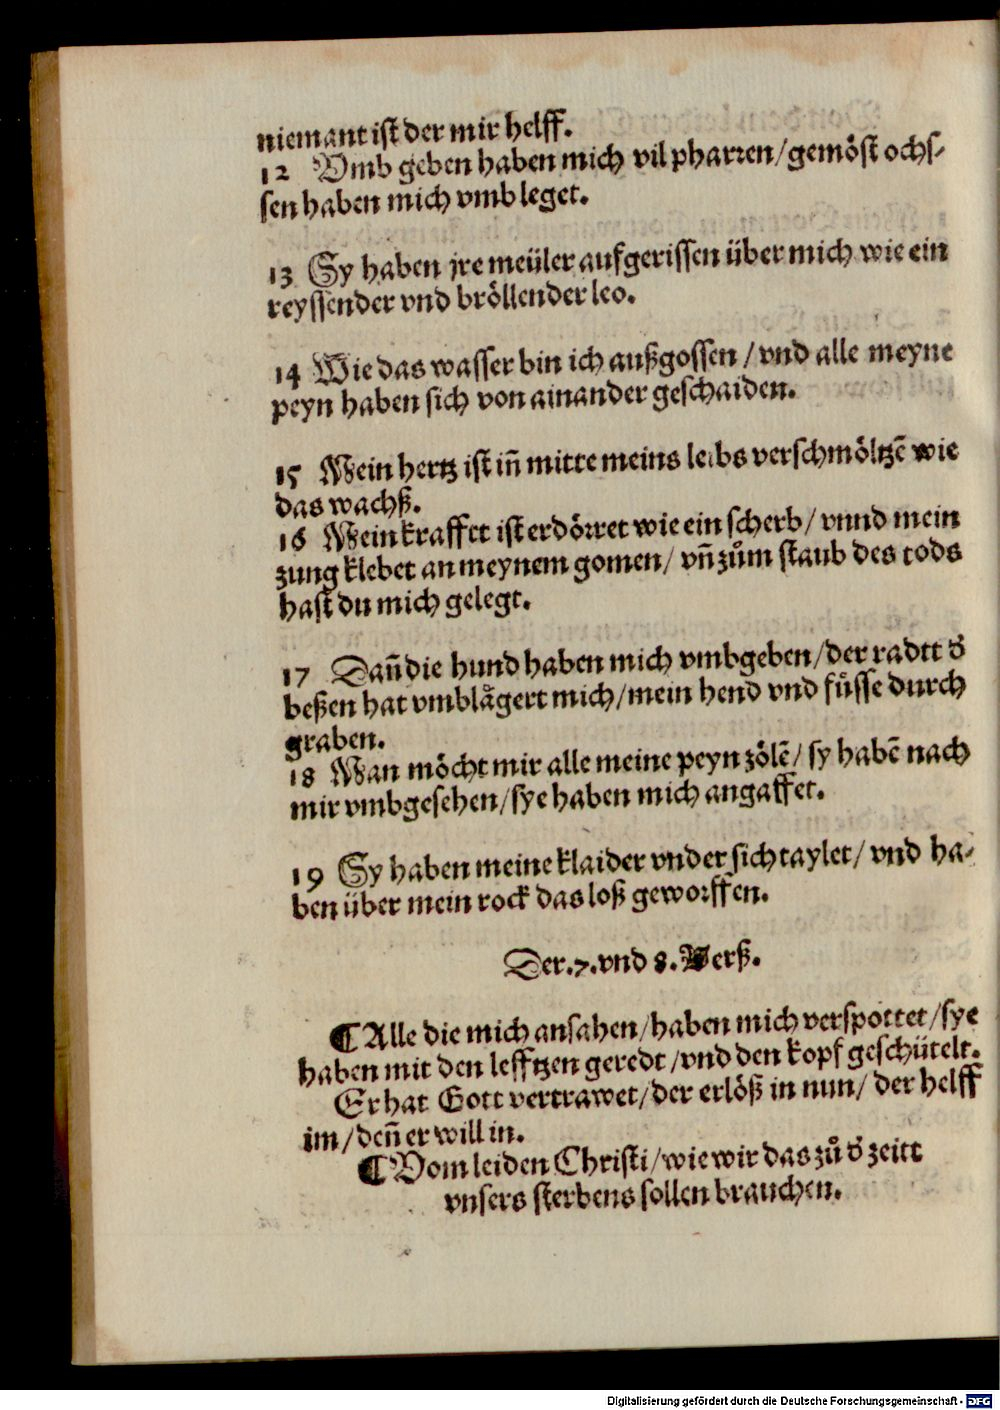 niemant ist der mir helff.
12 Vmb geben haben mich vil pharren/gemöst ochs-
sen haben mich vmb leget.
13 Sy haben jre meüler aufgerissen über mich wie ein
reyssender vnd bröllender leo.
14 Wie das wasser bin ich außgossen/vnd alle meyne
peyn haben sich von ainander geschaiden.
15 Mein hertz ist in̄ mitte meins leibs verschmöltzē wie
das wachß.
16 Mein krafftt ist erdörret wie ein scherb/vnnd mein
zung klebet an meynem gomen/vn̄ zům staub des tods
hast du mich gelegt.
17 Dan̄ die hund haben mich vmbgeben/der radtt d̕
beßen hat vmblågert mich/mein hend vnd füsse durch
graben.
18 Man möcht mir alle meine peyn zölē/sy habē nach
mir vmbgesehen/sye haben mich angaffet.
19 Sy haben meine klaider vnder sich taylet/vnd ha-
ben über mein rock das loß geworffen.
Der.7.vnd 8.Verß.
¶Alle die mich ansahen/haben mich verspottet/sye
haben mit den lefftzen geredt/vnd den kopf geschütelt.
Er hat Gott vertrawet/der erlöß in nun/der helff
im/den̄ er will in.
¶Vom leiden Christi/wie wir das zů d̕ zeitt
vnsers sterbens sollen brauchen.
Digitalisierung gefördert durch die Deutsche Forschungsgemeinschaft - DFG